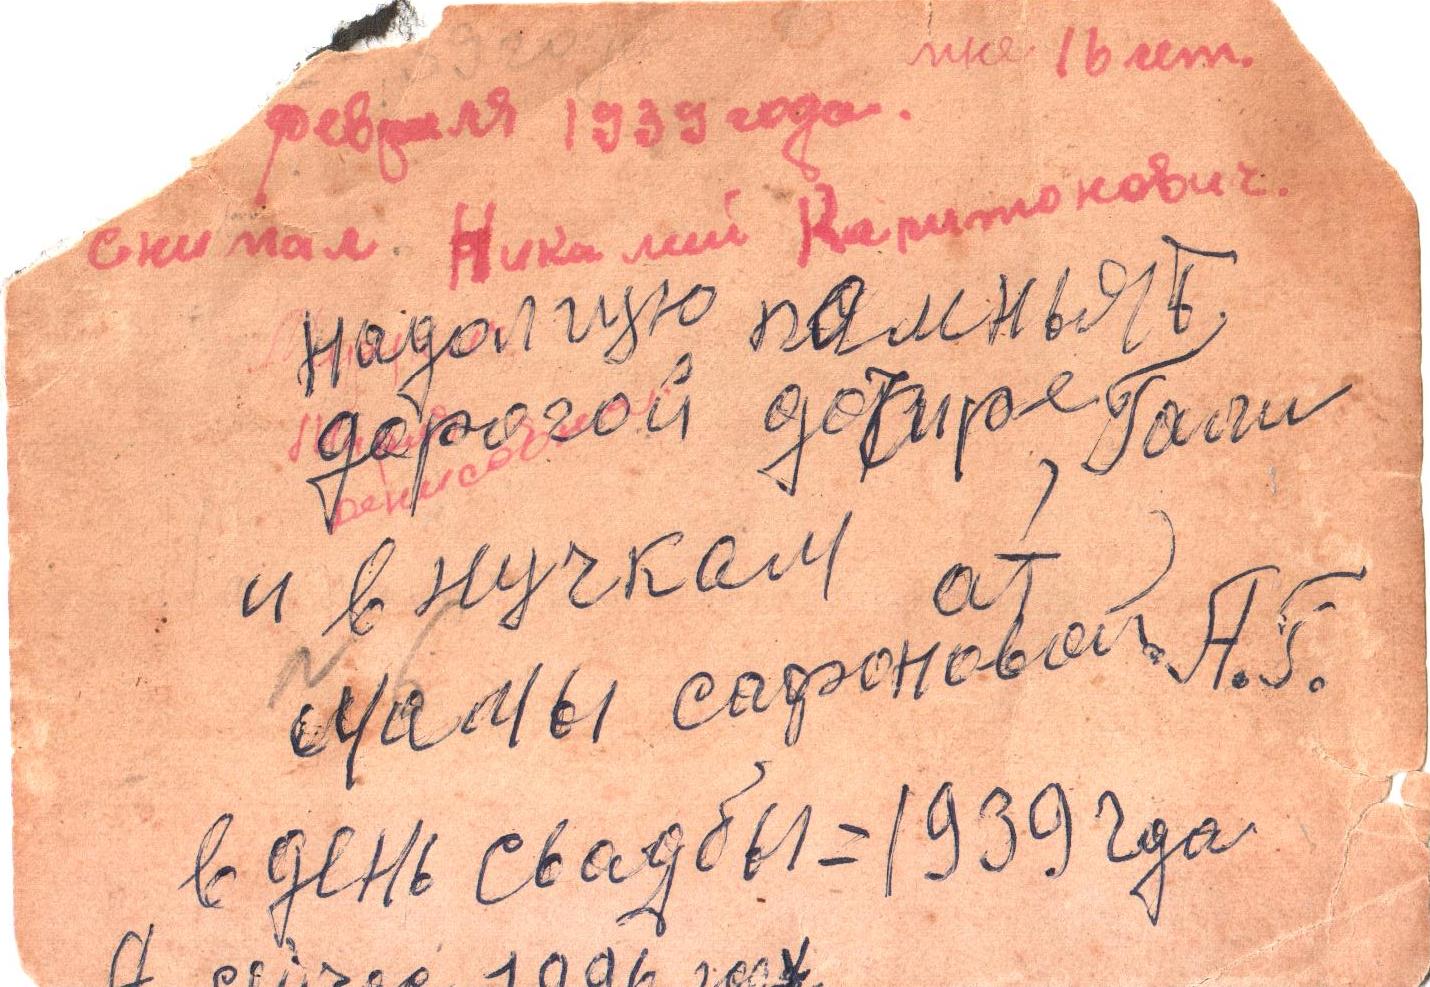 мне 16 лет.
февраля 1939 года.
снимал Николай Капитонович.
надолгую памньять
дорогой дочире Гали
и внучкам от
мамы сафоновой А.Г.
в день свадьбы = 1939 гда
А сейчас 1996 год